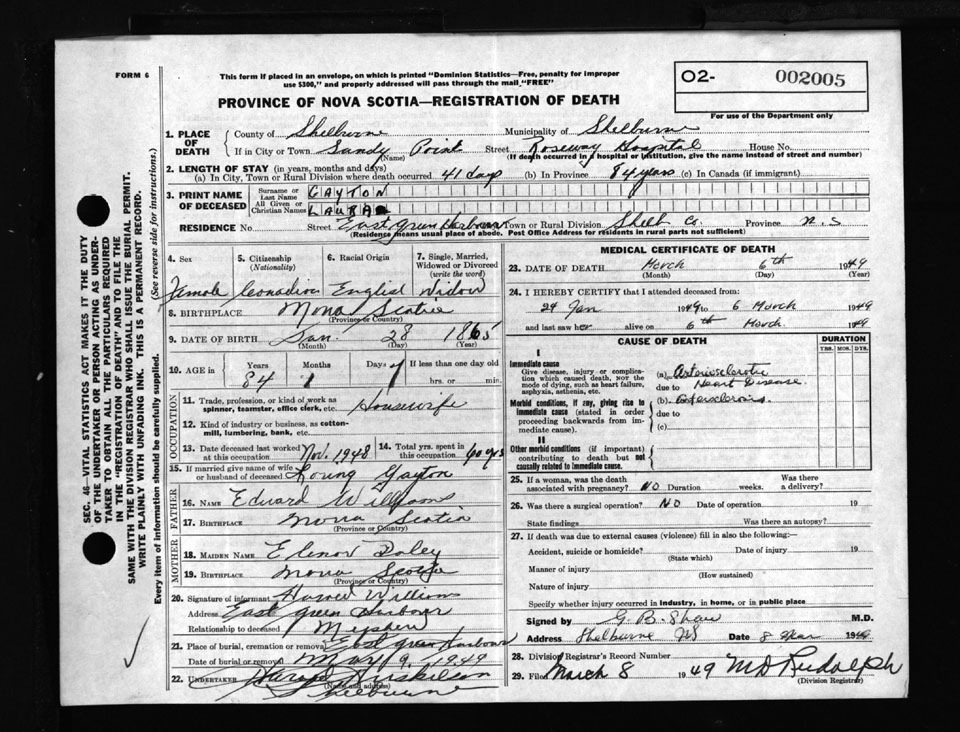 FORM 6
This form if placed in an envelope, on which is printed "Dominion Statistics—Free, penalty for improper
use $300," and properly addressed will pass through the mail "FREE"
O2- 002005
PROVINCE OF NOVA SCOTIA—REGISTRATION OF DEATH
For use of the Department only
1. PLACE OF DEATH
County of Shelburne Municipality of Shelburne
If in City or Town Sandy Point Street Roseway Hospital House No.
(Name) (If death occurred in a hospital or institution, give the name instead of street and number)
2. LENGTH OF STAY (in years, months and days)
(a) In City, Town or Rural Division where death occurred 41 days (b) In Province 84 years (c) In Canada (if immigrant)
3. PRINT NAME OF DECEASED
Surname or Last Name GAYTON
All Given or Christian Names LAURA
RESIDENCE No. Street East green Harbour Town or Rural Division Shelb Co. Province N.S
(Residence means usual place of abode. Post Office Address for residents in rural parts not sufficient)
4. Sex 5. Citizenship (Nationality) 6. Racial Origin 7. Single, Married, Widowed or Divorced (write the word)
Female Canadian English Widow
8. BIRTHPLACE Nova Scotia
(Province or Country)
9. DATE OF BIRTH Jan. 28 1865
(Month) (Day) (Year)
10. AGE in Years Months Days If less than one day old
84 1 hrs. or min.
OCCUPATION
11. Trade, profession, or kind of work as spinner, teamster, office clerk, etc. Housewife
12. Kind of industry or business, as cotton-mill, lumbering, bank, etc.
13. Date deceased last worked at this occupation Nov. 1948 14. Total yrs. spent in this occupation 60 yrs
15. If married give name of wife or husband of deceased Gayton
FATHER
16. NAME Edward Williams
17. BIRTHPLACE Nova Scotia
(Province or Country)
MOTHER
18. MAIDEN NAME Elenor Daley
19. BIRTHPLACE Nova Scotia
(Province or Country)
20. Signature of informant Williams
Address East green Harbour
Relationship to deceased
21. Place of burial, cremation or removal East green Harbour
Date of burial or removal Mar 9, 1949
22. UNDERTAKER Huskilson
(Name and address)
Shelburne
MEDICAL CERTIFICATE OF DEATH
23. DATE OF DEATH March 6th 1949
(Month) (Day) (Year)
24. I HEREBY CERTIFY that I attended deceased from:
24 Jan 1949 to 6 March 1949
and last saw her alive on 6th March 1949
CAUSE OF DEATH DURATION
YRS. MOS. DYS.
I
Immediate cause
Give disease, injury or complication which caused death, not the mode of dying, such as heart failure, asphyxia, asthenia, etc.
(a) Arteriosclerotic
due to Heart Disease
Morbid conditions, if any, giving rise to immediate cause (stated in order proceeding backwards from immediate cause).
(b) Arterosclerosis
due to
(c)
II
Other morbid conditions (if important) contributing to death but not causally related to immediate cause.
25. If a woman, was the death associated with pregnancy? NO Duration weeks. Was there a delivery?
26. Was there a surgical operation? NO Date of operation 19
State findings Was there an autopsy?
27. If death was due to external causes (violence) fill in also the following:—
Accident, suicide or homicide? Date of injury 19
(State which)
Manner of injury
(How sustained)
Nature of injury
Specify whether injury occurred in industry, in home, or in public place
Signed by G. B. Shaw M.D.
Address Shelburne NS Date 8 Mar 1949
28. Division Registrar's Record Number
29. Filed March 8 1949 MD Rudolph
(Division Registrar)
SEC. 46—VITAL STATISTICS ACT MAKES IT THE DUTY
OF THE UNDERTAKER OR PERSON ACTING AS UNDER-
TAKER TO OBTAIN ALL THE PARTICULARS REQUIRED
IN THE "REGISTRATION OF DEATH" AND TO FILE THE
SAME WITH THE DIVISION REGISTRAR WHO SHALL ISSUE THE BURIAL PERMIT.
WRITE PLAINLY WITH UNFADING INK. THIS IS A PERMANENT RECORD.
Every item of information should be carefully supplied. (See reverse side for instructions.)